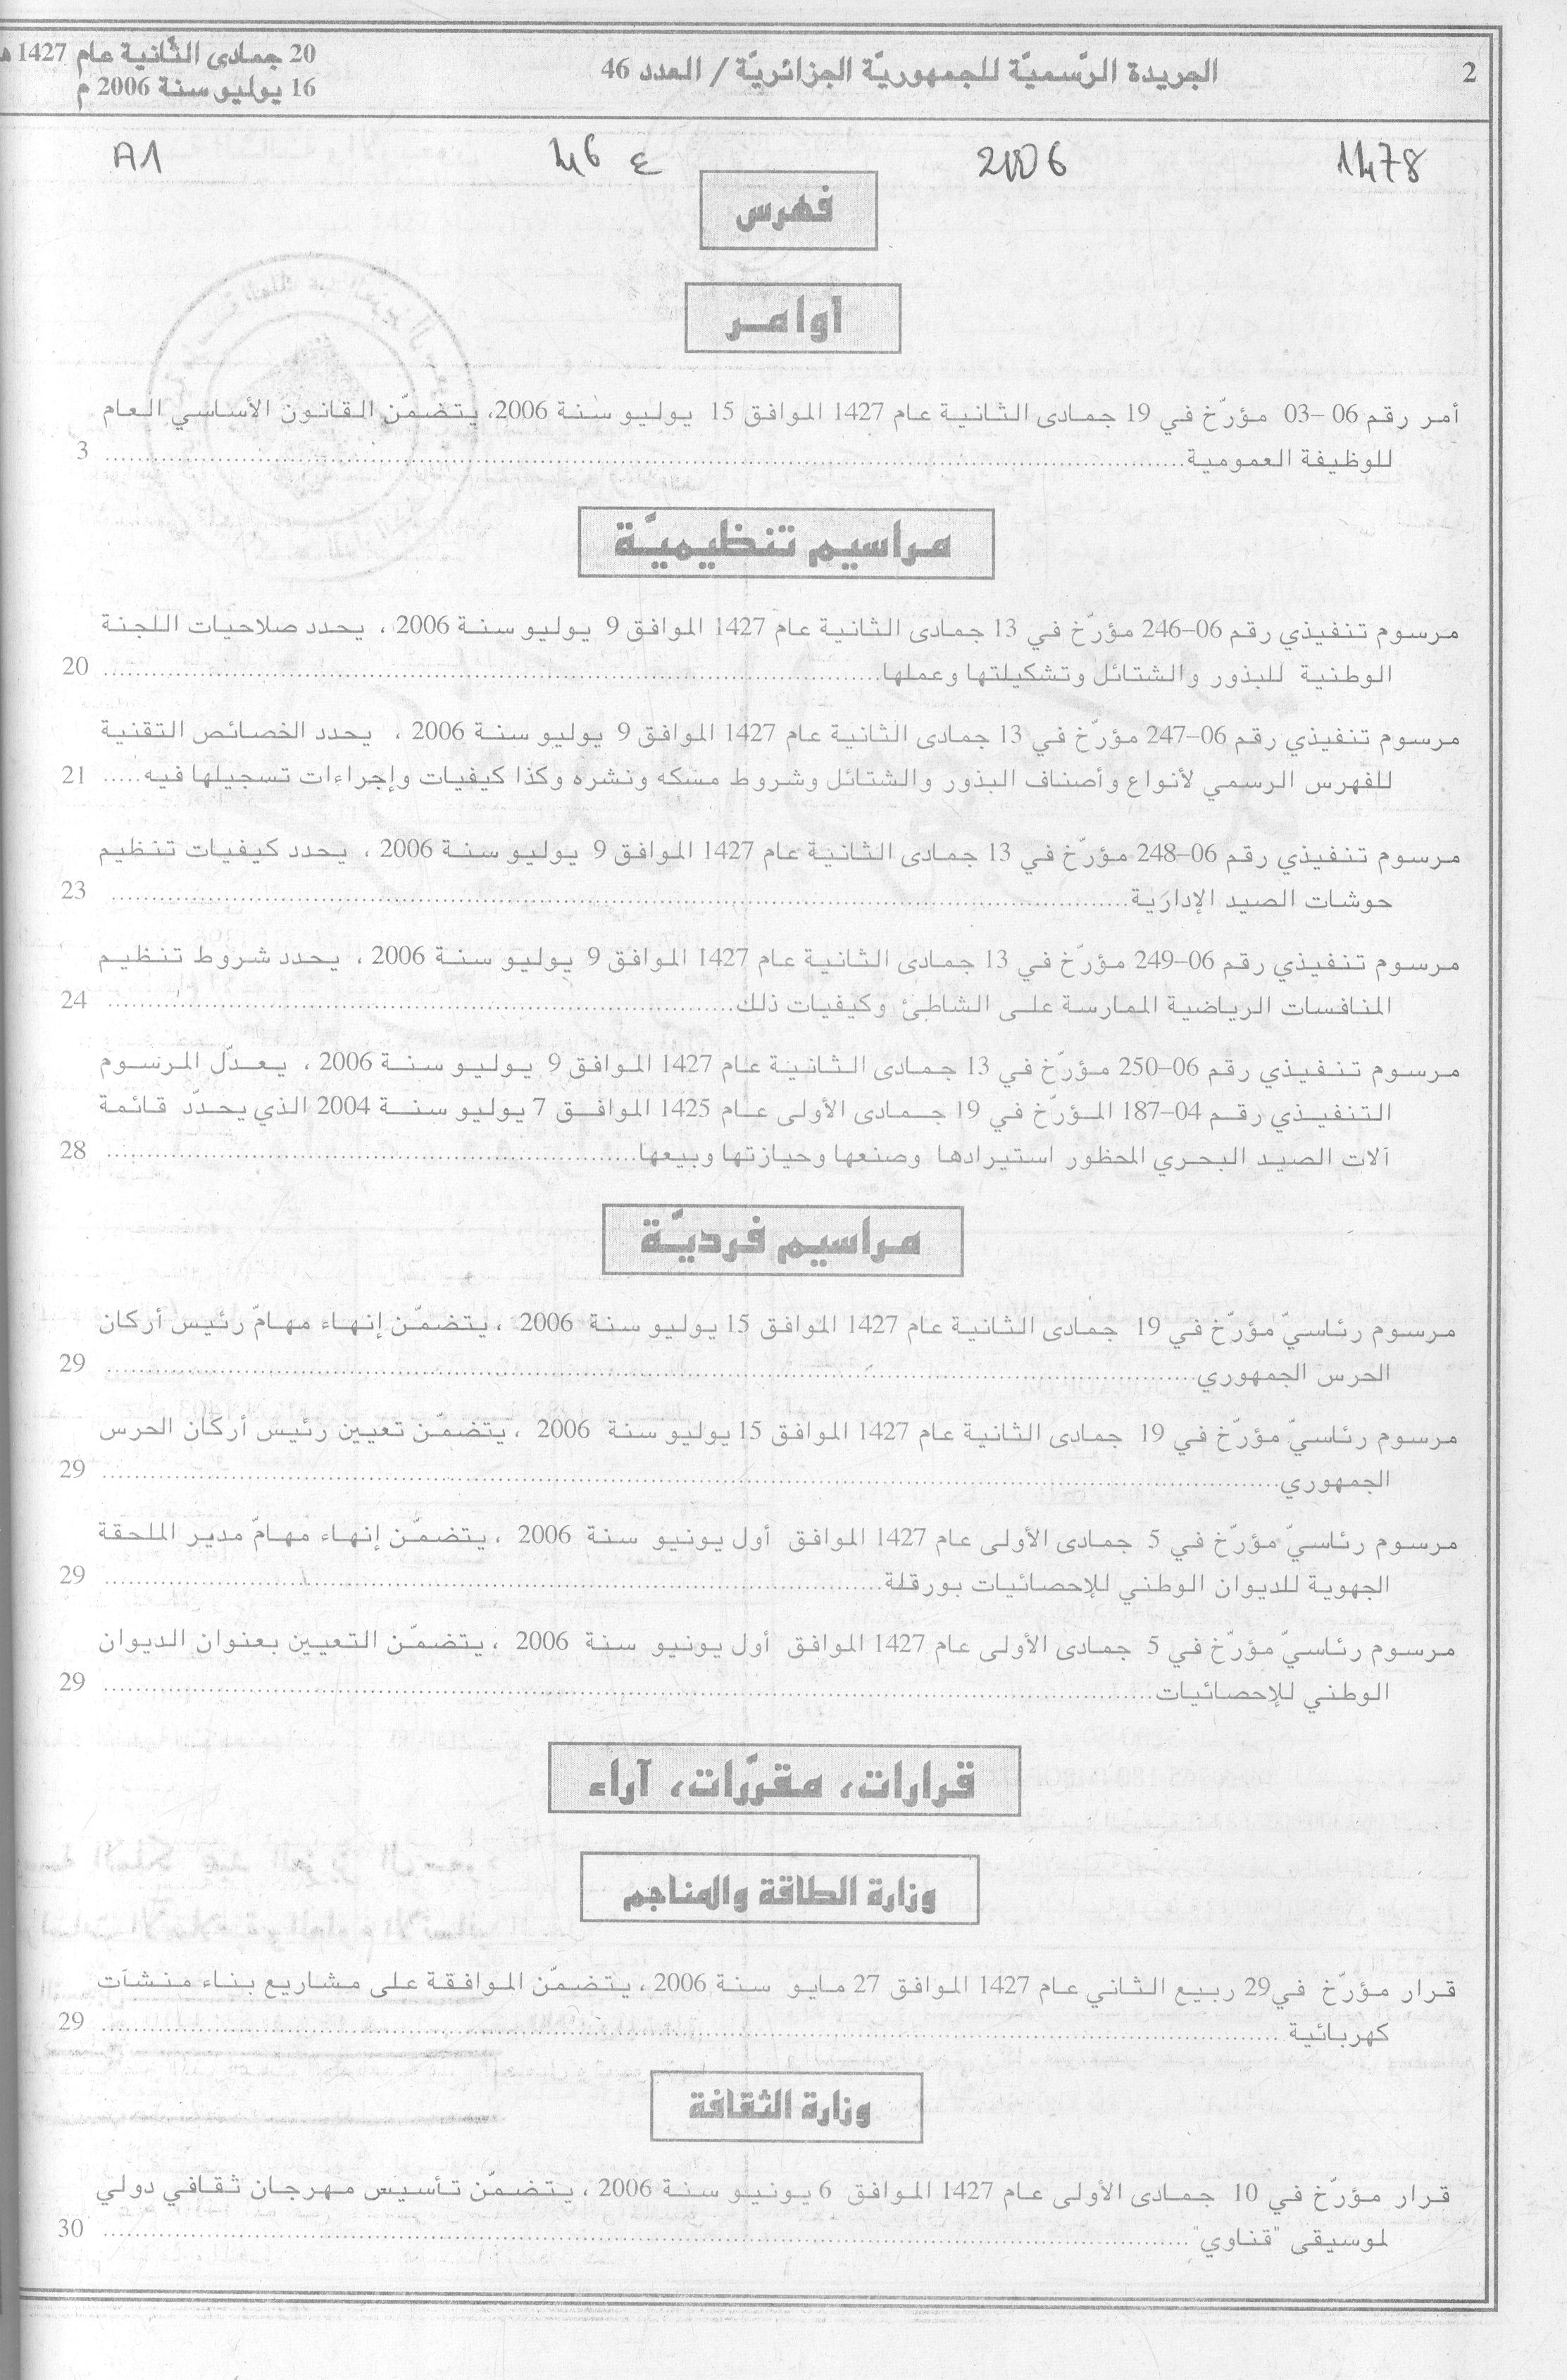 2
الجريدة الرّسميّة للجمهوريّة الجزائريّة / العدد 46
20 جمادى الثّانية عام 1427 هـ
16 يوليو سنة 2006 م
1478 2006 ع 46 A1
فهرس
أوامـر
أمر رقم 06-03 مؤرّخ في 19 جمادى الثانية عام 1427 الموافق 15 يوليو سنة 2006، يتضمّن القانون الأساسي العام
للوظيفة العمومية.......... 3
مراسيم تنظيميّة
مرسوم تنفيذي رقم 06-246 مؤرّخ في 13 جمادى الثانية عام 1427 الموافق 9 يوليو سنة 2006 ، يحدد صلاحيات اللجنة
الوطنية للبذور والشتائل وتشكيلتها وعملها.......... 20
مرسوم تنفيذي رقم 06-247 مؤرّخ في 13 جمادى الثانية عام 1427 الموافق 9 يوليو سنة 2006 ، يحدد الخصائص التقنية
للفهرس الرسمي لأنواع وأصناف البذور والشتائل وشروط مسكه ونشره وكذا كيفيات وإجراءات تسجيلها فيه..... 21
مرسوم تنفيذي رقم 06-248 مؤرّخ في 13 جمادى الثانية عام 1427 الموافق 9 يوليو سنة 2006 ، يحدد كيفيات تنظيم
حوشات الصيد الإدارية.......... 23
مرسوم تنفيذي رقم 06-249 مؤرّخ في 13 جمادى الثانية عام 1427 الموافق 9 يوليو سنة 2006 ، يحدد شروط تنظيم
المنافسات الرياضية الممارسة على الشاطئ وكيفيات ذلك.......... 24
مرسوم تنفيذي رقم 06-250 مؤرّخ في 13 جمادى الثانية عام 1427 الموافق 9 يوليو سنة 2006 ، يعدّل المرسوم
التنفيذي رقم 04-187 المؤرّخ في 19 جمادى الأولى عام 1425 الموافق 7 يوليو سنة 2004 الذي يحدّد قائمة
آلات الصيد البحري المحظور استيرادها وصنعها وحيازتها وبيعها.......... 28
مراسيم فرديّة
مرسوم رئاسيّ مؤرّخ في 19 جمادى الثانية عام 1427 الموافق 15 يوليو سنة 2006 ، يتضمّن إنهاء مهامّ رئيس أركان
الحرس الجمهوري.......... 29
مرسوم رئاسيّ مؤرّخ في 19 جمادى الثانية عام 1427 الموافق 15 يوليو سنة 2006 ، يتضمّن تعيين رئيس أركان الحرس
الجمهوري.......... 29
مرسوم رئاسيّ مؤرّخ في 5 جمادى الأولى عام 1427 الموافق أول يونيو سنة 2006 ، يتضمّن إنهاء مهامّ مدير الملحقة
الجهوية للديوان الوطني للإحصائيات بورقلة.......... 29
مرسوم رئاسيّ مؤرّخ في 5 جمادى الأولى عام 1427 الموافق أول يونيو سنة 2006 ، يتضمّن التعيين بعنوان الديوان
الوطني للإحصائيات.......... 29
قرارات، مقرّرات، آراء
وزارة الطاقة والمناجم
قرار مؤرّخ في 29 ربيع الثاني عام 1427 الموافق 27 مايو سنة 2006 ، يتضمّن الموافقة على مشاريع بناء منشآت
كهربائية .......... 29
وزارة الثقافة
قرار مؤرّخ في 10 جمادى الأولى عام 1427 الموافق 6 يونيو سنة 2006 ، يتضمّن تأسيس مهرجان ثقافي دولي
لموسيقى "قناوي".......... 30